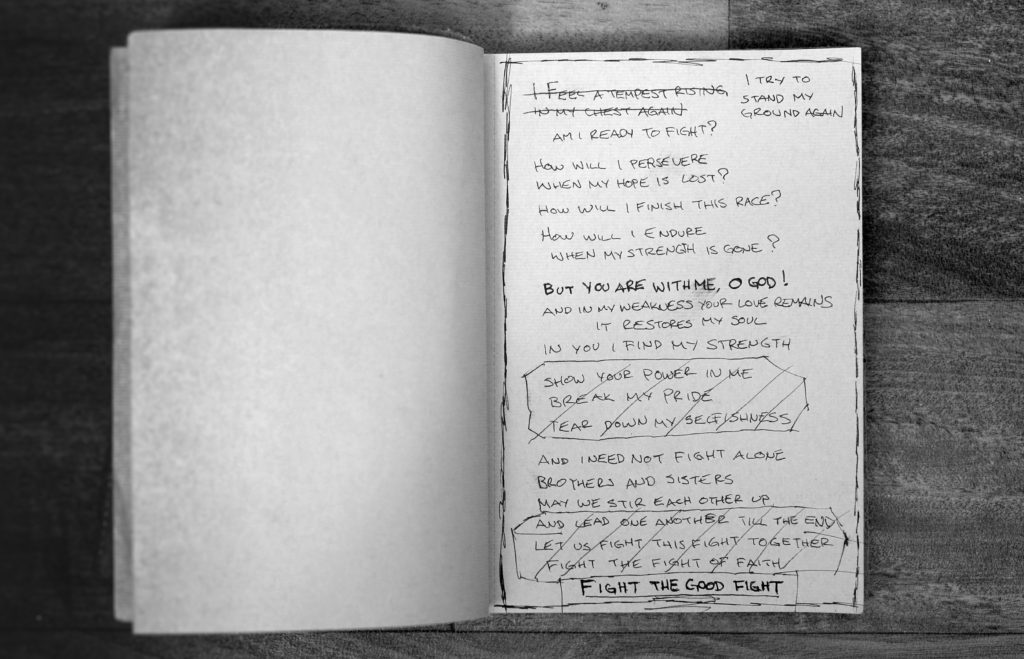 I FEEL A TEMPEST RISING,
IN MY CHEST AGAIN
I TRY TO
STAND MY
GROUND AGAIN
AM I READY TO FIGHT?
HOW WILL I PERSEVERE
WHEN MY HOPE IS LOST?
HOW WILL I FINISH THIS RACE?
HOW WILL I ENDURE
WHEN MY STRENGTH IS GONE?
BUT YOU ARE WITH ME, O GOD!
AND IN MY WEAKNESS YOUR LOVE REMAINS
IT RESTORES MY SOUL
IN YOU I FIND MY STRENGTH
SHOW YOUR POWER IN ME
BREAK MY PRIDE
TEAR DOWN MY SELFISHNESS
AND I NEED NOT FIGHT ALONE
BROTHERS AND SISTERS
MAY WE STIR EACH OTHER UP
AND LEAD ONE ANOTHER TILL THE END
LET US FIGHT THIS FIGHT TOGETHER
FIGHT THE FIGHT OF FAITH
FIGHT THE GOOD FIGHT